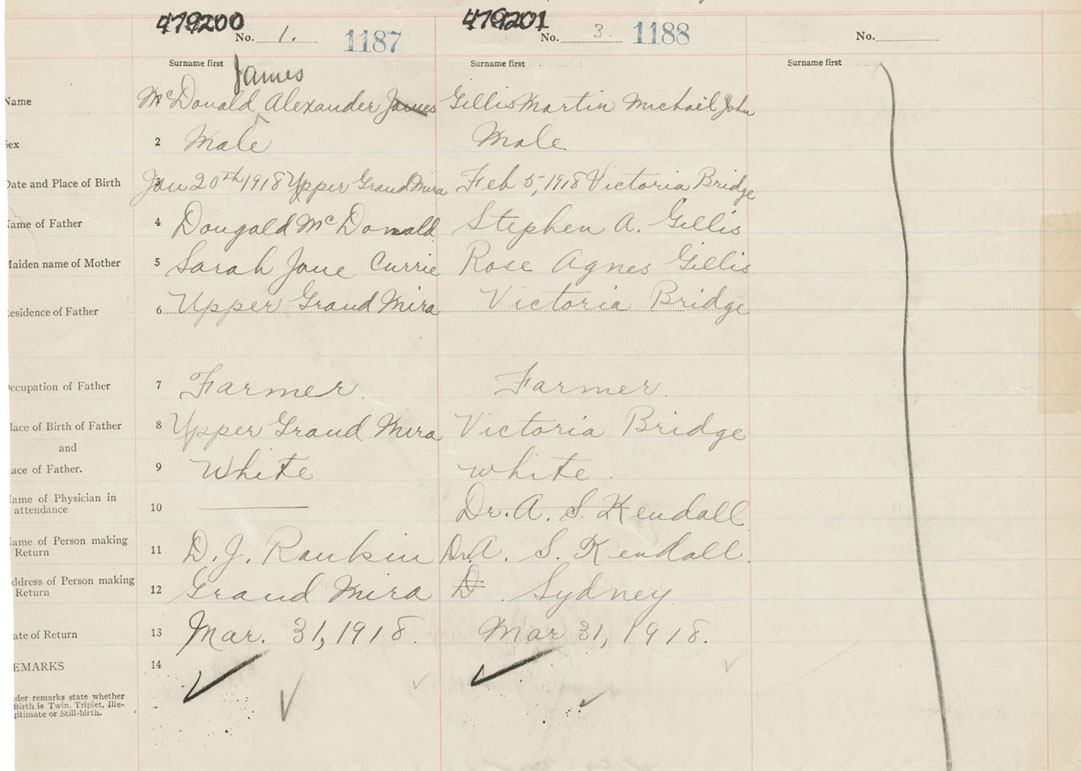 479200 479201
No. 1. 1187 No. 3. 1188 No.
Surname first Surname first Surname first
James
Name McDonald Alexander James Gillis Martin Michael John
ex 2 Male Male
Date and Place of Birth 3 Jan 20th 1918 Upper Grand Mira Feb 5, 1918 Victoria Bridge
Name of Father 4 Dougald McDonald Stephen A. Gillis
Maiden name of Mother 5 Sarah Jane Currie Rose Agnes Gillis
esidence of Father 6 Upper Grand Mira Victoria Bridge
ccupation of Father 7 Farmer Farmer
lace of Birth of Father 8 Upper Grand Mira Victoria Bridge
and
ace of Father. 9 White white
ame of Physician in
attendance 10 Dr. A. S. Kendall
ame of Person making
Return 11 D. J. Rankin Dr A. S. Kendall.
ddress of Person making
Return 12 Grand Mira D Sydney
ate of Return 13 Mar. 31, 1918. Mar 31, 1918.
EMARKS 14
nder remarks state whether
Birth is Twin, Triplet, Ille-
gitimate or Still-birth.